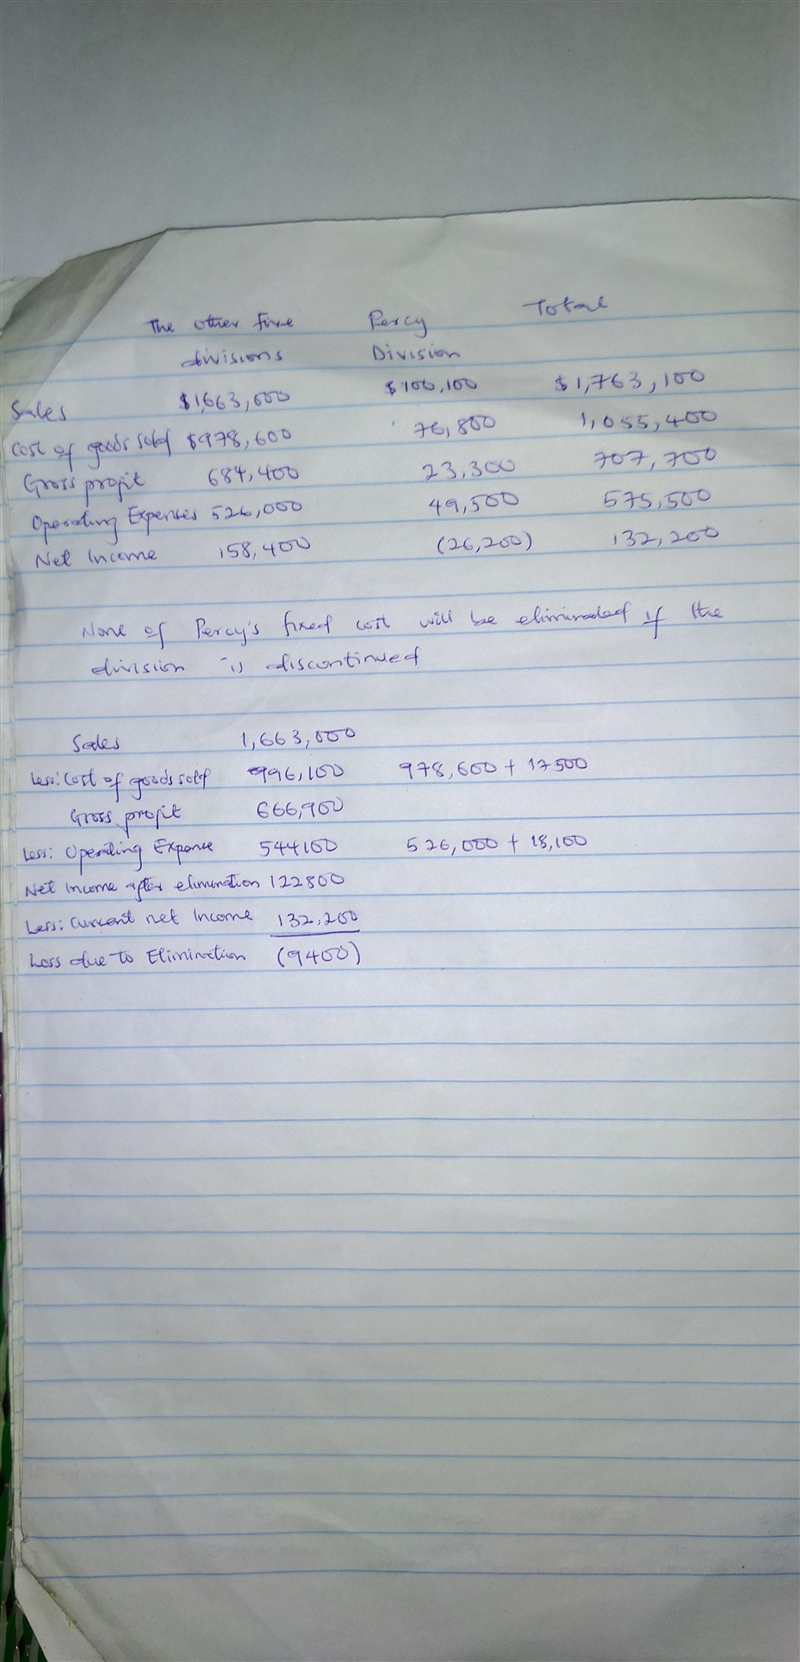 The other five Percy Total
divisions Division
Sales $1,663,000 $100,100 $1,763,100
Cost of goods sold $978,600 76,800 1,055,400
Gross profit 684,400 23,300 707,700
Operating Expenses 526,000 49,500 575,500
Net Income 158,400 (26,200) 132,200
None of Percy's fixed cost will be eliminated if the
division is discontinued
Sales 1,663,000
Less: Cost of goods sold 996,100 978,600 + 17500
Gross profit 666,900
Less: Operating Expense 544100 526,000 + 18,100
Net Income after elimination 122800
Less: Current net Income 132,200
Loss due to Elimination (9400)